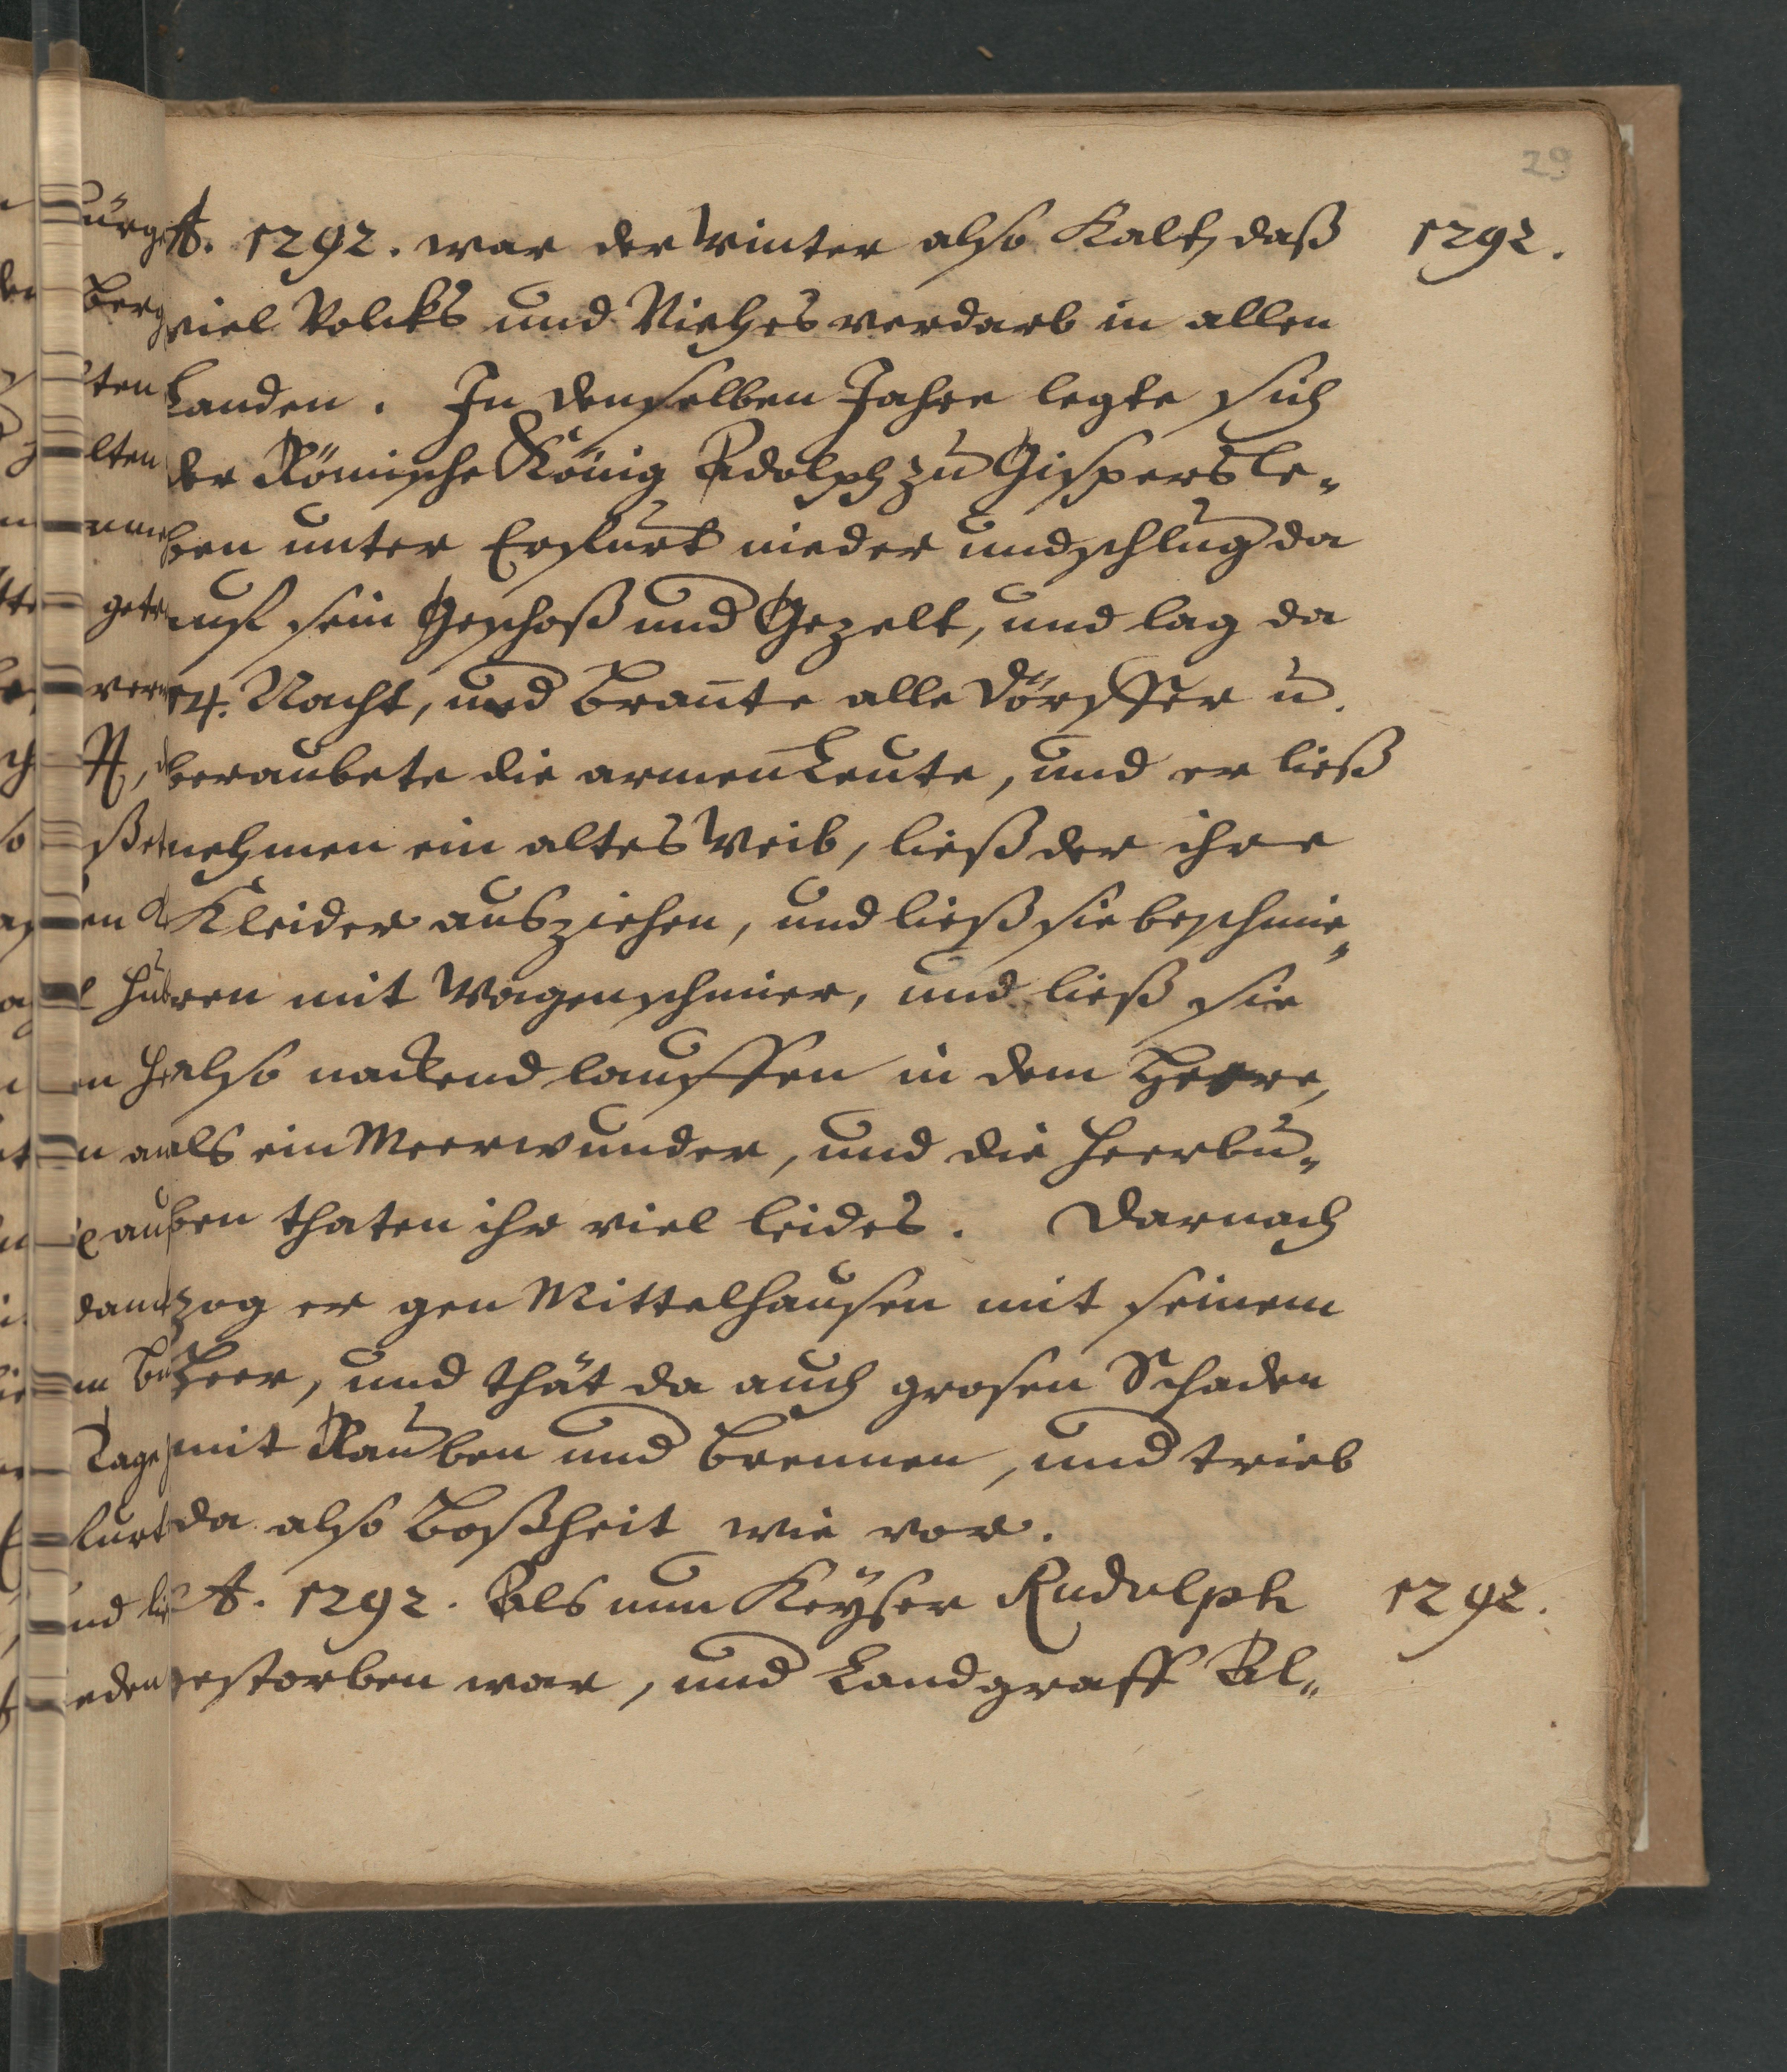 29
A. 1292. war der Winter also Kalt, daß 1292.
viel Volcks und Viehes verdarb in allen
Landen. In demselben Jahre legte sich
der Römische König Adolph zu Gispersle-
ben unter Erffurt nieder und schlug da
auf sein Geschoß und Gezelt, und lag da
14. Nacht, und brañte alle Dörffer u.
beraubete die armen Leute, und er ließ
nehmen ein altes Weib, ließ der ihre
Kleider ausziehen, und ließ sie beschmie-
ren mit Wagenschmier, und ließ sie
also nackend lauffen in dem Heere,
als ein Meerwunder, und die Heerbu-
ben thaten ihr viel leides. Darnach
zog er gen Mittelhausen mit seinem
Heer, und thät da auch grosen Schaden
mit Rauben und brennen, und trieb
da also Boßheit wie vor.
A. 1292. Als nun Keyser Rudolph 1292.
gestorben war, und Landgraff Al-